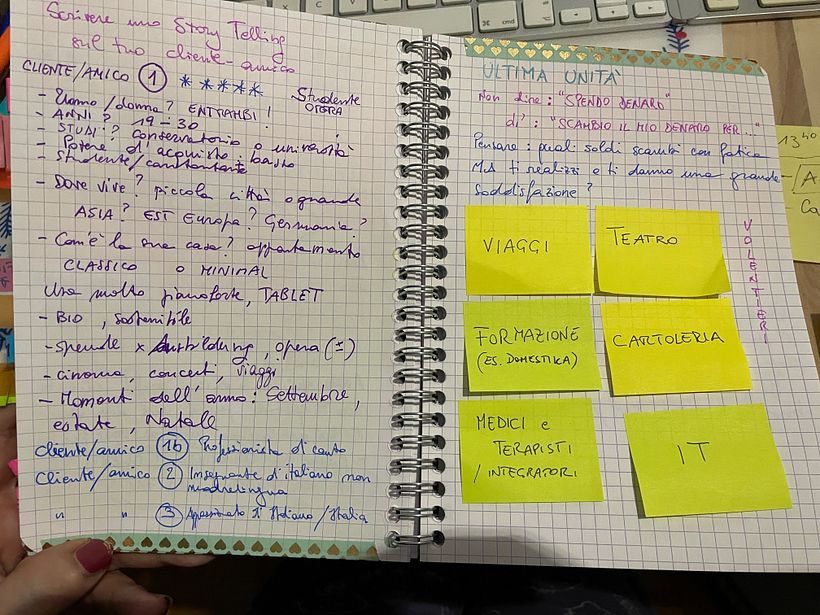 Scrivere uno Story Telling
sul tuo cliente-amico
CLIENTE/AMICO 1 *****
Studente
OPERA
- Uomo/donna? ENTRAMBI!
- ANNI? 19-30
- STUDI? conservatorio o università
- Potere d'acquisto: basso
- studente/cantante
- Dove vive? piccola città o grande
ASIA? EST Europa? Germania?
- Com'è la sua casa? appartamento
CLASSICO o MINIMAL
Usa molto pianoforte, TABLET
- BIO, sostenibile
- spende x Ausbildung, opera (±)
- cinema, concerti, viaggi
- Momenti dell'anno: Settembre,
estate, Natale
cliente/amico 1b Professionista di canto
Cliente/amico 2 Insegnante di italiano non
madrelingua
" " 3 Appassionato d'Italiano/Italia
ULTIMA UNITÀ
Non dire: "SPENDO DENARO"
di': "SCAMBIO IL MIO DENARO PER..."
Pensare: quali soldi scambi con fatica
MA ti realizzi e ti danno una grande
soddisfazione?
VIAGGI
TEATRO
FORMAZIONE
(ES. DOMESTIKA)
CARTOLERIA
MEDICI e
TERAPISTI
/INTEGRATORI
IT
VOLENTIERI
13 40
A
Ca